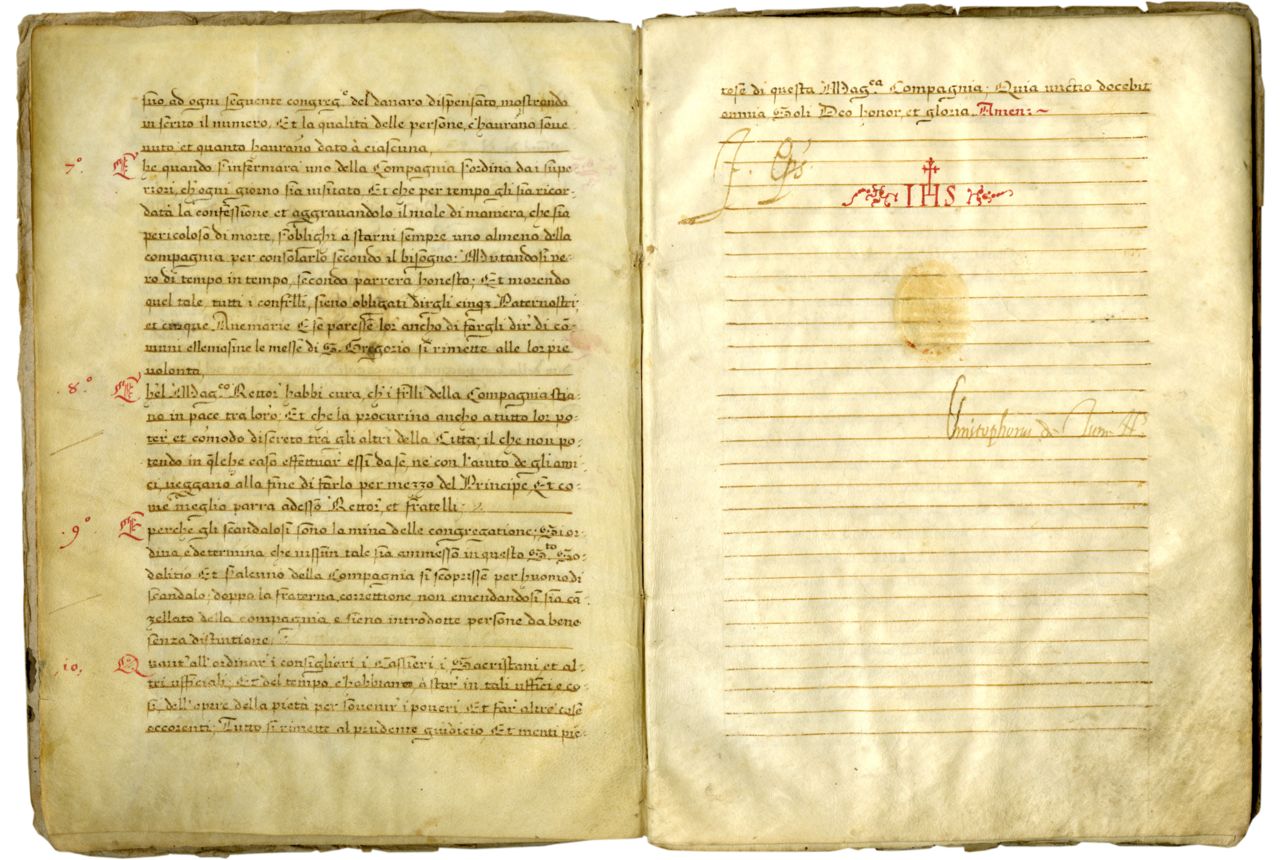 suo ad ogni seguente congreg.º del danaro dispensato, mostrando
in scrito il numero, Et la qualità delle persone, c'hauranno soue
nuto et quanto hauranno dato à ciascuna,
7.º Che quando s'infermara uno della Compagnia s'ordina dai supe
riori, ch'ogni giorno sia uisitato Et che per tempo gli sia ricor-
data la confessione et aggrauandolo il male di maniera, che sia
pericoloso di morte, s'oblighi à starui sempre uno almeno della
compagnia per consolarlo secondo il bisogno: Mutandosi pe-
ro di tempo in tempo, secondo parrerà honesto; Et morendo
quel tale, tutti i confrlli, sieno obligati dirgli cinqz Paternostri
et cinque Auemarie E se paresse lor' ancho di fargli dir' di cõ-
muni ellemosine le messe di S. Gregorio si rimette alle lor pie
uolonta,
.8.º Chel' Mag.co Rettor' habbi cura, ch'i frlli della Compagnia stia-
no in pace tra loro: Et che la procurino ancho a tutto lor po-
ter' et comodo discreto tra gli altri della Citta; il che non po-
tendo in qlche caso effettuar' essi da se, ne' con l'aiuto de gli ami
ci, ueggano alla fine di farlo per mezzo del Principe, Et co-
me meglio parra ad essò Rettor' et fratelli:
.9.º E perche gli scandalosi sono la ruina delle congregatione; Si or-
dina, e determina che nissun tale sia ammesso in questo S.to So-
dalitio Et s'alcuno della Compagnia si scoprisse per huomo di
scandalo; doppo la fraterna correttione non emendandosi sia cã-
zellato della compagnia e sieno introdotte persone da bene
senza distintione,
.10. Quant' all'ordinar' i consiglieri i Cassieri i Sacristani, et al-
tri ufficiali; Et del tempo c'habbiano à star' in tali uffici e co-
si dell'opere della pietà per souenir' i poueri Et far' altre cose
occorenti: Tutto si rimette al prudente giudicio Et menti pie-
tose di questa Mag.ca Compagnia; Quia unctio docebit
omnia Soli Deo honor et gloria Amen:~
F. Eps
IHS